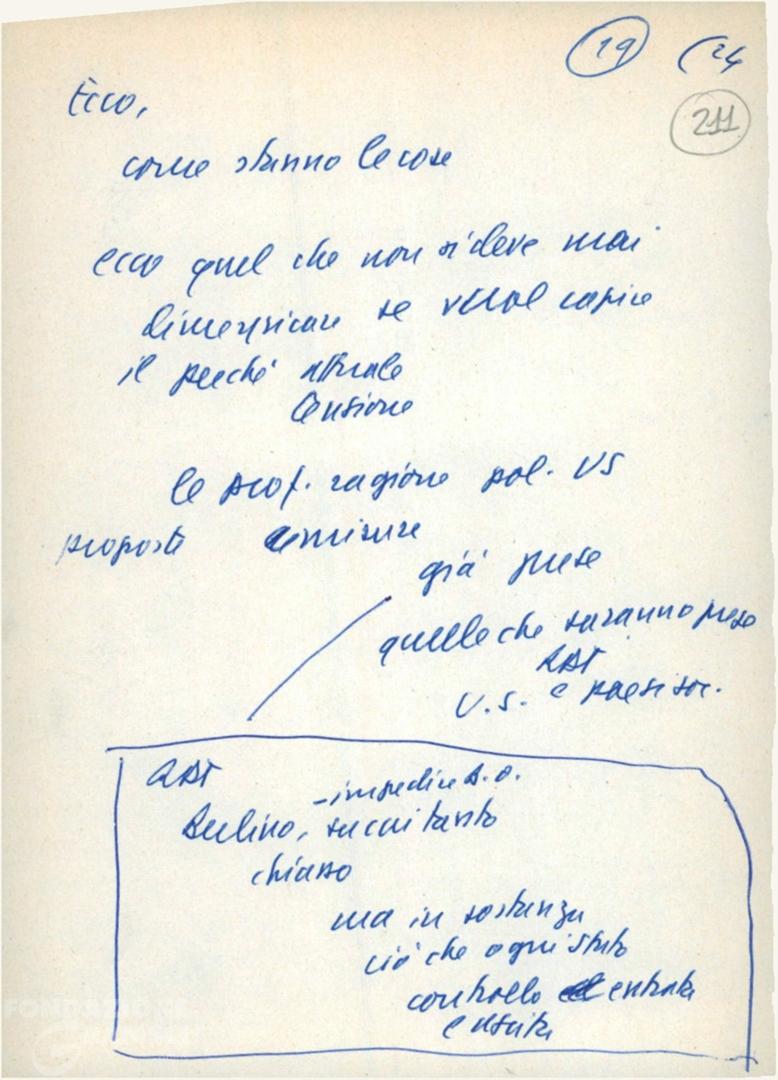 19 (24
211
Ecco,
come stanno le cose
ecco quel che non si deve mai
dimenticare se vuol capire
il perché attuale
tensione
le prof. ragione pol. US
proposte e misure
già prese
quelle che saranno prese
RDT
U.S. e paesi soc.
RDT
- impedire B. O.
Berlino, su cui tanto
chiasso
ma in sostanza
ciò che ogni stato
controllo entrata
e uscita
FONDAZIONE